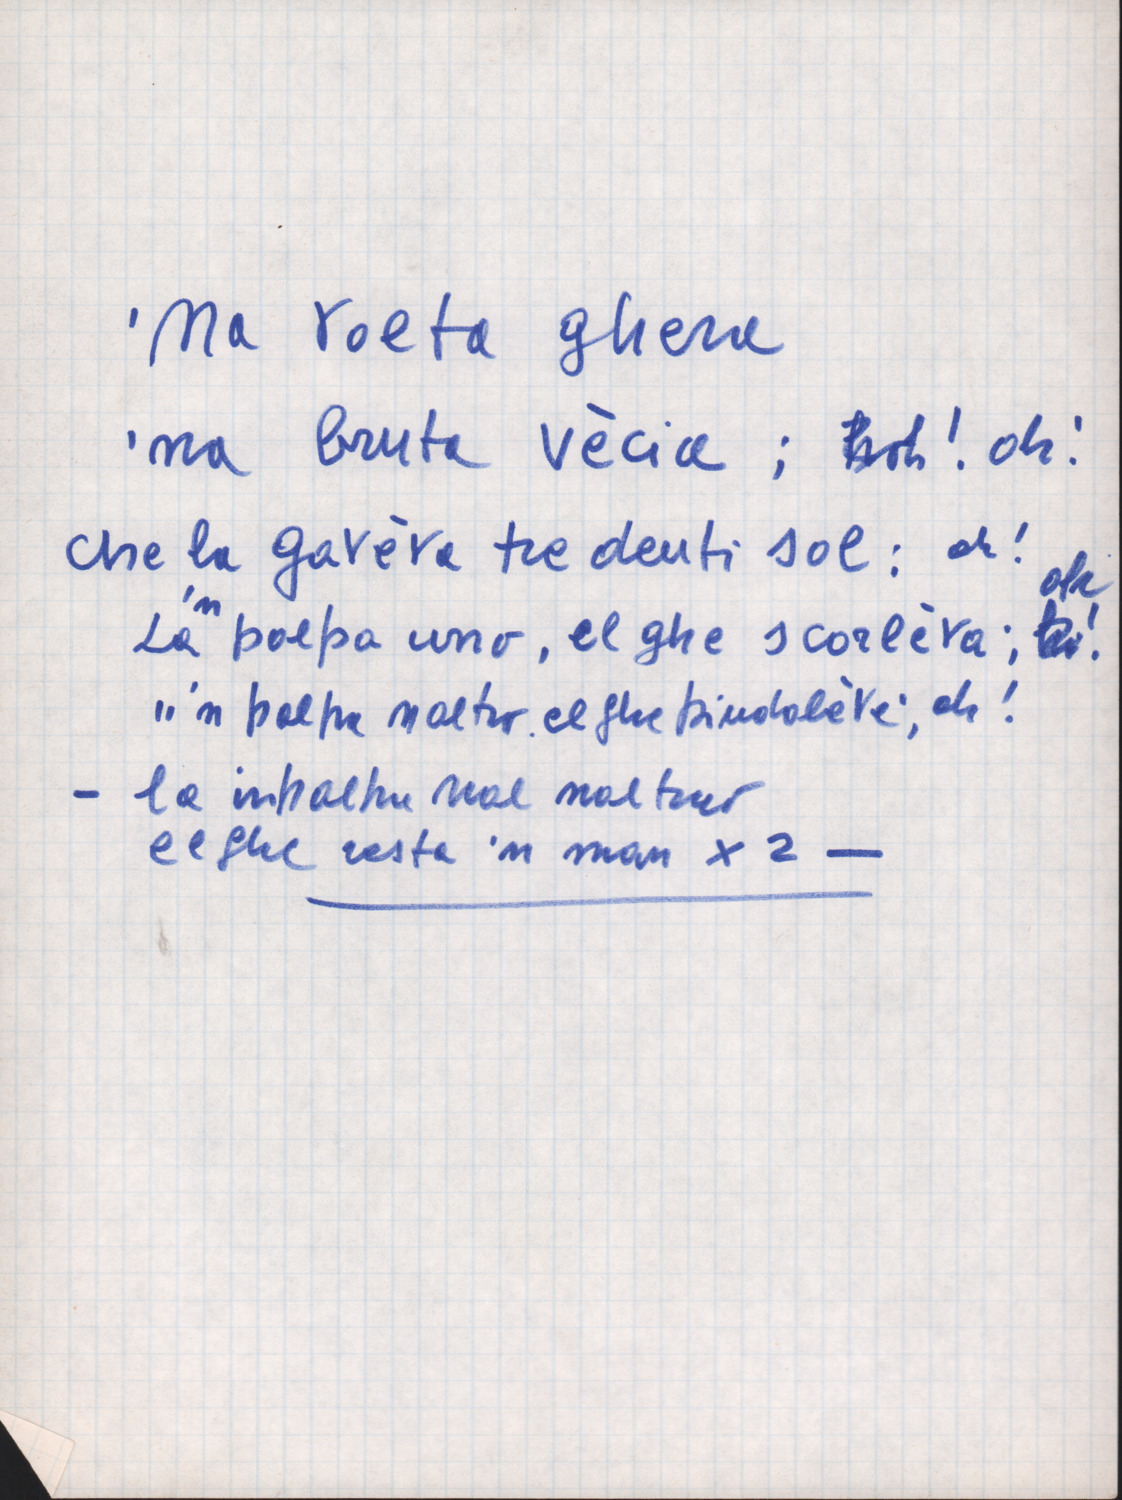 'Na volta ghera
'na bruta vècia ; oh! oh!
che la gavèva tre denti sol : oh!
La 'n palpa uno, el ghe scorlèva ; oh!
" 'n palpa naltro. el ghe pindolèva ; oh!
- la inpalpa nal naltro
el ghe resta 'n man x 2 —